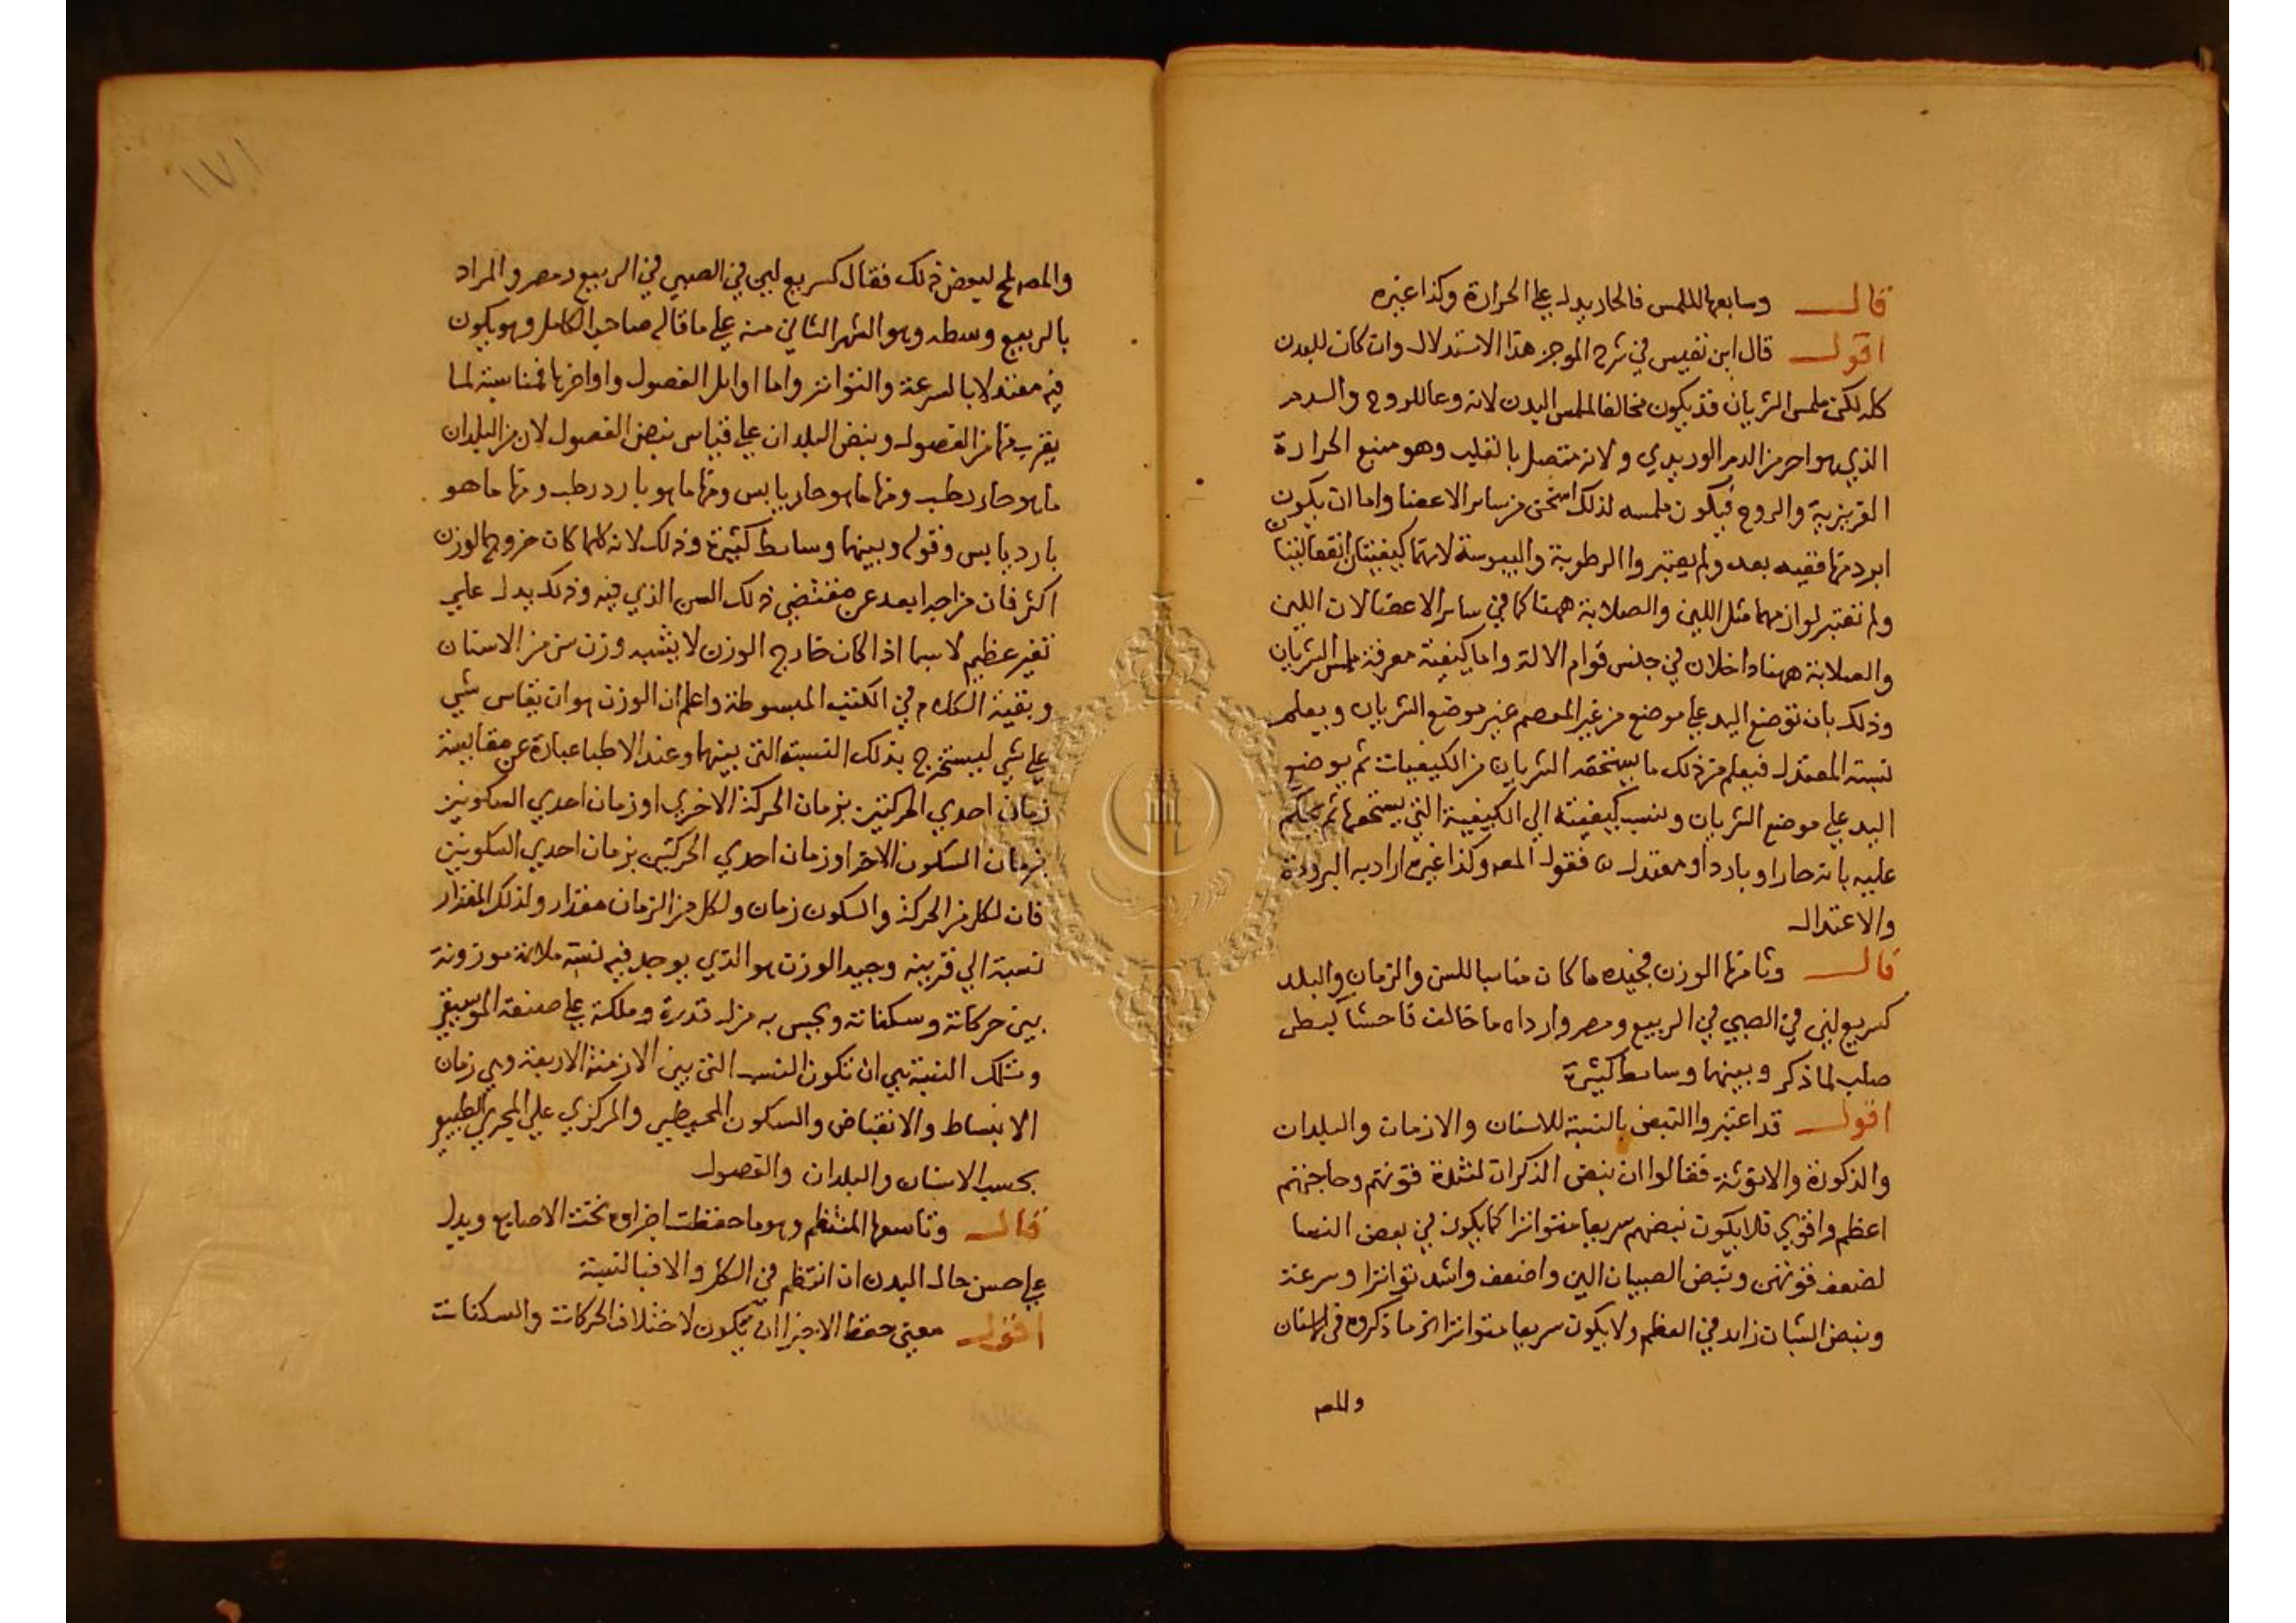 قال وسابعها الملمس فالحار يدل علي الحرارة وكذا غيره
اقول قال ابن نفيس في شرح الموجز هذا الاستدلال وان كان للبدن
كله لكن ملمس الشريان قد يكون مخالفا لملمس البدن لانه وعا للروح والدم
الذي هو احر من الدم الوريدي ولانه متصل بالقلب وهو منبع الحرارة
الغريزية والروح فيكون ملمسه لذلك اسخن من ساير الاعضا واما ان يكون
ابرد منها ففيه بعد ولم يعتبروا الرطوبة واليبوسة لانهما كيفيتان انفعاليتان
ولم تعتبر لوازمهما مثل اللين والصلابة ههنا كما في ساير الاعضا لان اللين
والصلابة ههنا داخلان في جنس قوام الالة واما كيفية معرفة ملمس الشريان
وذلك بان توضع اليد علي موضع من غير المعصم غير موضع الشريان ويعلم
نسبته المعتدل فيعلم من ذلك ما يستحقه الشريان من الكيفيات ثم يوضع
اليد علي موضع الشريان وينسب كيفيته الي الكيفية التي يستحقها ثم يحكم
عليه بانه حار او بارد او معتدل فقول المصه وكذا غيره اراد به البرودة
والاعتدال
قال وثامنها الوزن فجيده ما كان مناسبا للسن والزمان والبلد
كسريع لين في الصبي في الربيع ومصر وارداه ما خالف فاحشا كبطي
صلب لما ذكر وبينهما وسايط كثيرة
اقول قد اعتبروا النبض بالنسبة للاسنان والازمان والبلدان
والذكورة والانوثة فقالوا ان نبض الذكران لشدة قوتهم وحاجتهم
اعظم واقوي فلا يكون نبضهم سريعا متواترا كما يكون في بعض النسا
لضعف قوتهن ونبض الصبيان الين واضعف واشد تواترا وسرعة
ونبض الشبان زايد في العظم ولا يكون سريعا متواترا الخ ما ذكروه في الاسنان
والمصه
١٧١
والمصه لمح لبعض ذلك فقال كسريع لين في الصبي في الربيع ومصر والمراد
بالربيع وسطه وهو الشهر الثاني منه علي ما قاله صاحب الكامل وهو يكون
فيه معتدلا بالسرعة والتواتر واما اوايل الفصول واواخرها فمناسبة لما
يقرب منها من الفصول ونبض البلدان علي قياس نبض الفصول لان من البلدان
ما هو حار رطب ومنها ما هو حار يابس ومنها ما هو بارد رطب ومنها ما هو
بارد يابس وقوله وبينهما وسايط كثيرة وذلك لانه كلما كان خروج الوزن
اكثر فان مزاجه ابعد عن مقتضي ذلك السن الذي فيه وذلك يدل علي
تغير عظيم لا سيما اذا كان خارج الوزن لا يشبه وزن سن من الاسنان
وبقية الكلام في الكتب المبسوطة واعلم ان الوزن هو ان يقاس شي
علي شي ليستخرج بذلك النسبة التي بينهما وعند الاطبا عبارة عن مقايسة
زمان احدي الحركتين بزمان الحركة الاخري او زمان احدي السكونين
بزمان السكون الاخر او زمان احدي الحركتين بزمان احدي السكونين
فان لكل من الحركة والسكون زمان ولكل من الزمان مقدار ولذلك المقدار
نسبة الي قرينه وجيد الوزن هو الذي يوجد فيه نسبة ملائمة موزونة
بين حركاته وسكناته ويحس به من له قدرة وملكة علي صنعة الموسيقي
وتلك النسبة هي ان تكون النسب التي بين الازمنة الاربعة وهي زمان
الانبساط والانقباض والسكون المحيطي والمركزي علي المجري الطبيعي
بحسب الاسنان والبلدان والفصول
قال وتاسعها المنتظم وهو ما حفظت اجزاوه تحت الاصابع ويدل
علي حسن حال البدن ان انتظم في الكل والا فبالنسبة
اقول معني حفظ الاجزا ان يكون لاختلاف الحركات والسكنات